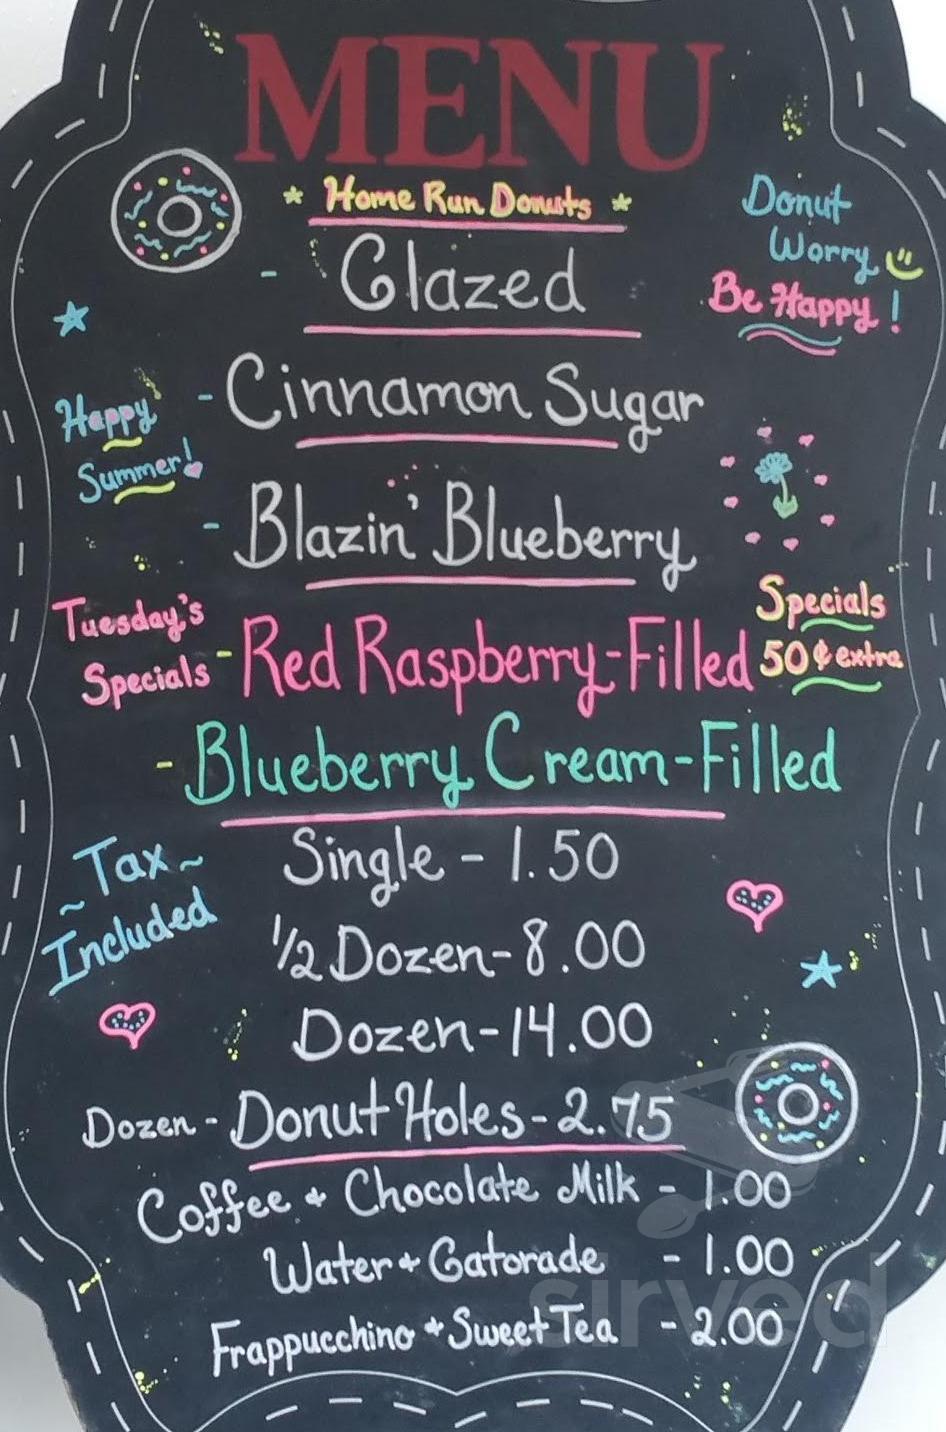 MENU
* Home Run Donuts *
Donut
Worry
Be Happy!
- Glazed
- Cinnamon Sugar
Happy
Summer!
- Blazin' Blueberry
Tuesday's
Specials
- Red Raspberry-Filled
Specials
50¢ extra
- Blueberry Cream-Filled
~ Tax ~
Included
Single - 1.50
1/2 Dozen - 8.00
Dozen - 14.00
Dozen - Donut Holes - 2.75
Coffee + Chocolate Milk - 1.00
Water + Gatorade - 1.00
Frappucchino + Sweet Tea - 2.00
sirved